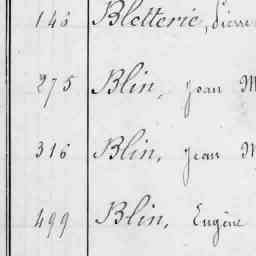 146 Bletterie, Pierre
275 Blin, Jean M
316 Blin, Jean M
499 Blin, Eugène